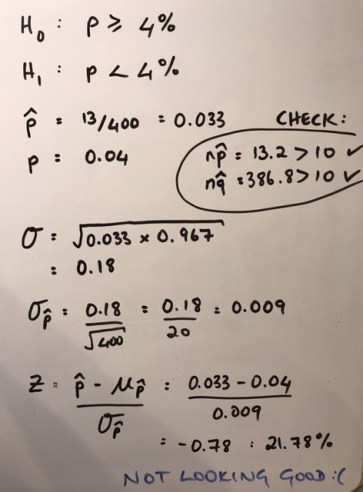 H₀ : P ≥ 4%
H₁ : P < 4%
p̂ = 13/400 = 0.033
CHECK:
p = 0.04
np̂ = 13.2 > 10 ✓
nq̂ = 386.8 > 10 ✓
σ = √0.033 × 0.967
= 0.18
σp̂ = 0.18/√400 = 0.18/20 = 0.009
Z = p̂ - μp̂ / σp̂ = 0.033 - 0.04 / 0.009
= -0.78 : 21.78%
NOT LOOKING GOOD :(